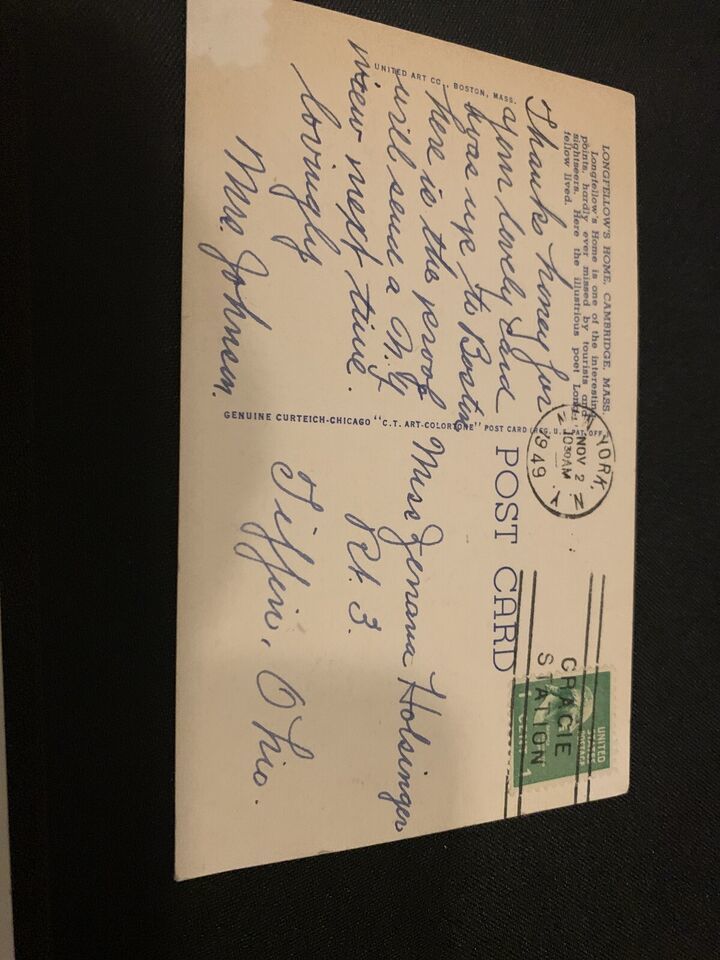 LONGFELLOW'S HOME, CAMBRIDGE, MASS.
Longfellow's Home is one of the interesting
points, hardly ever missed by tourists and
sightseers. Here the illustrious poet Long-
fellow lived.
Thanks honey for
your lovely card
was up to Boston
here is the proof
will send a N.Y
view next time.
lovingly
Mrs. Johnson.
UNITED ART CO., BOSTON, MASS.
GENUINE CURTEICH-CHICAGO "C.T. ART-COLORTONE" POST CARD (REG. U.S. PAT. OFF.
POST CARD
YORK, N.
NOV 2
10 30 AM
1949
GRACIE
STATION
UNITED
STATES
POSTAGE
1 CENT 1
Miss Holsinger
Rt. 3.
Tiffin, Ohio.